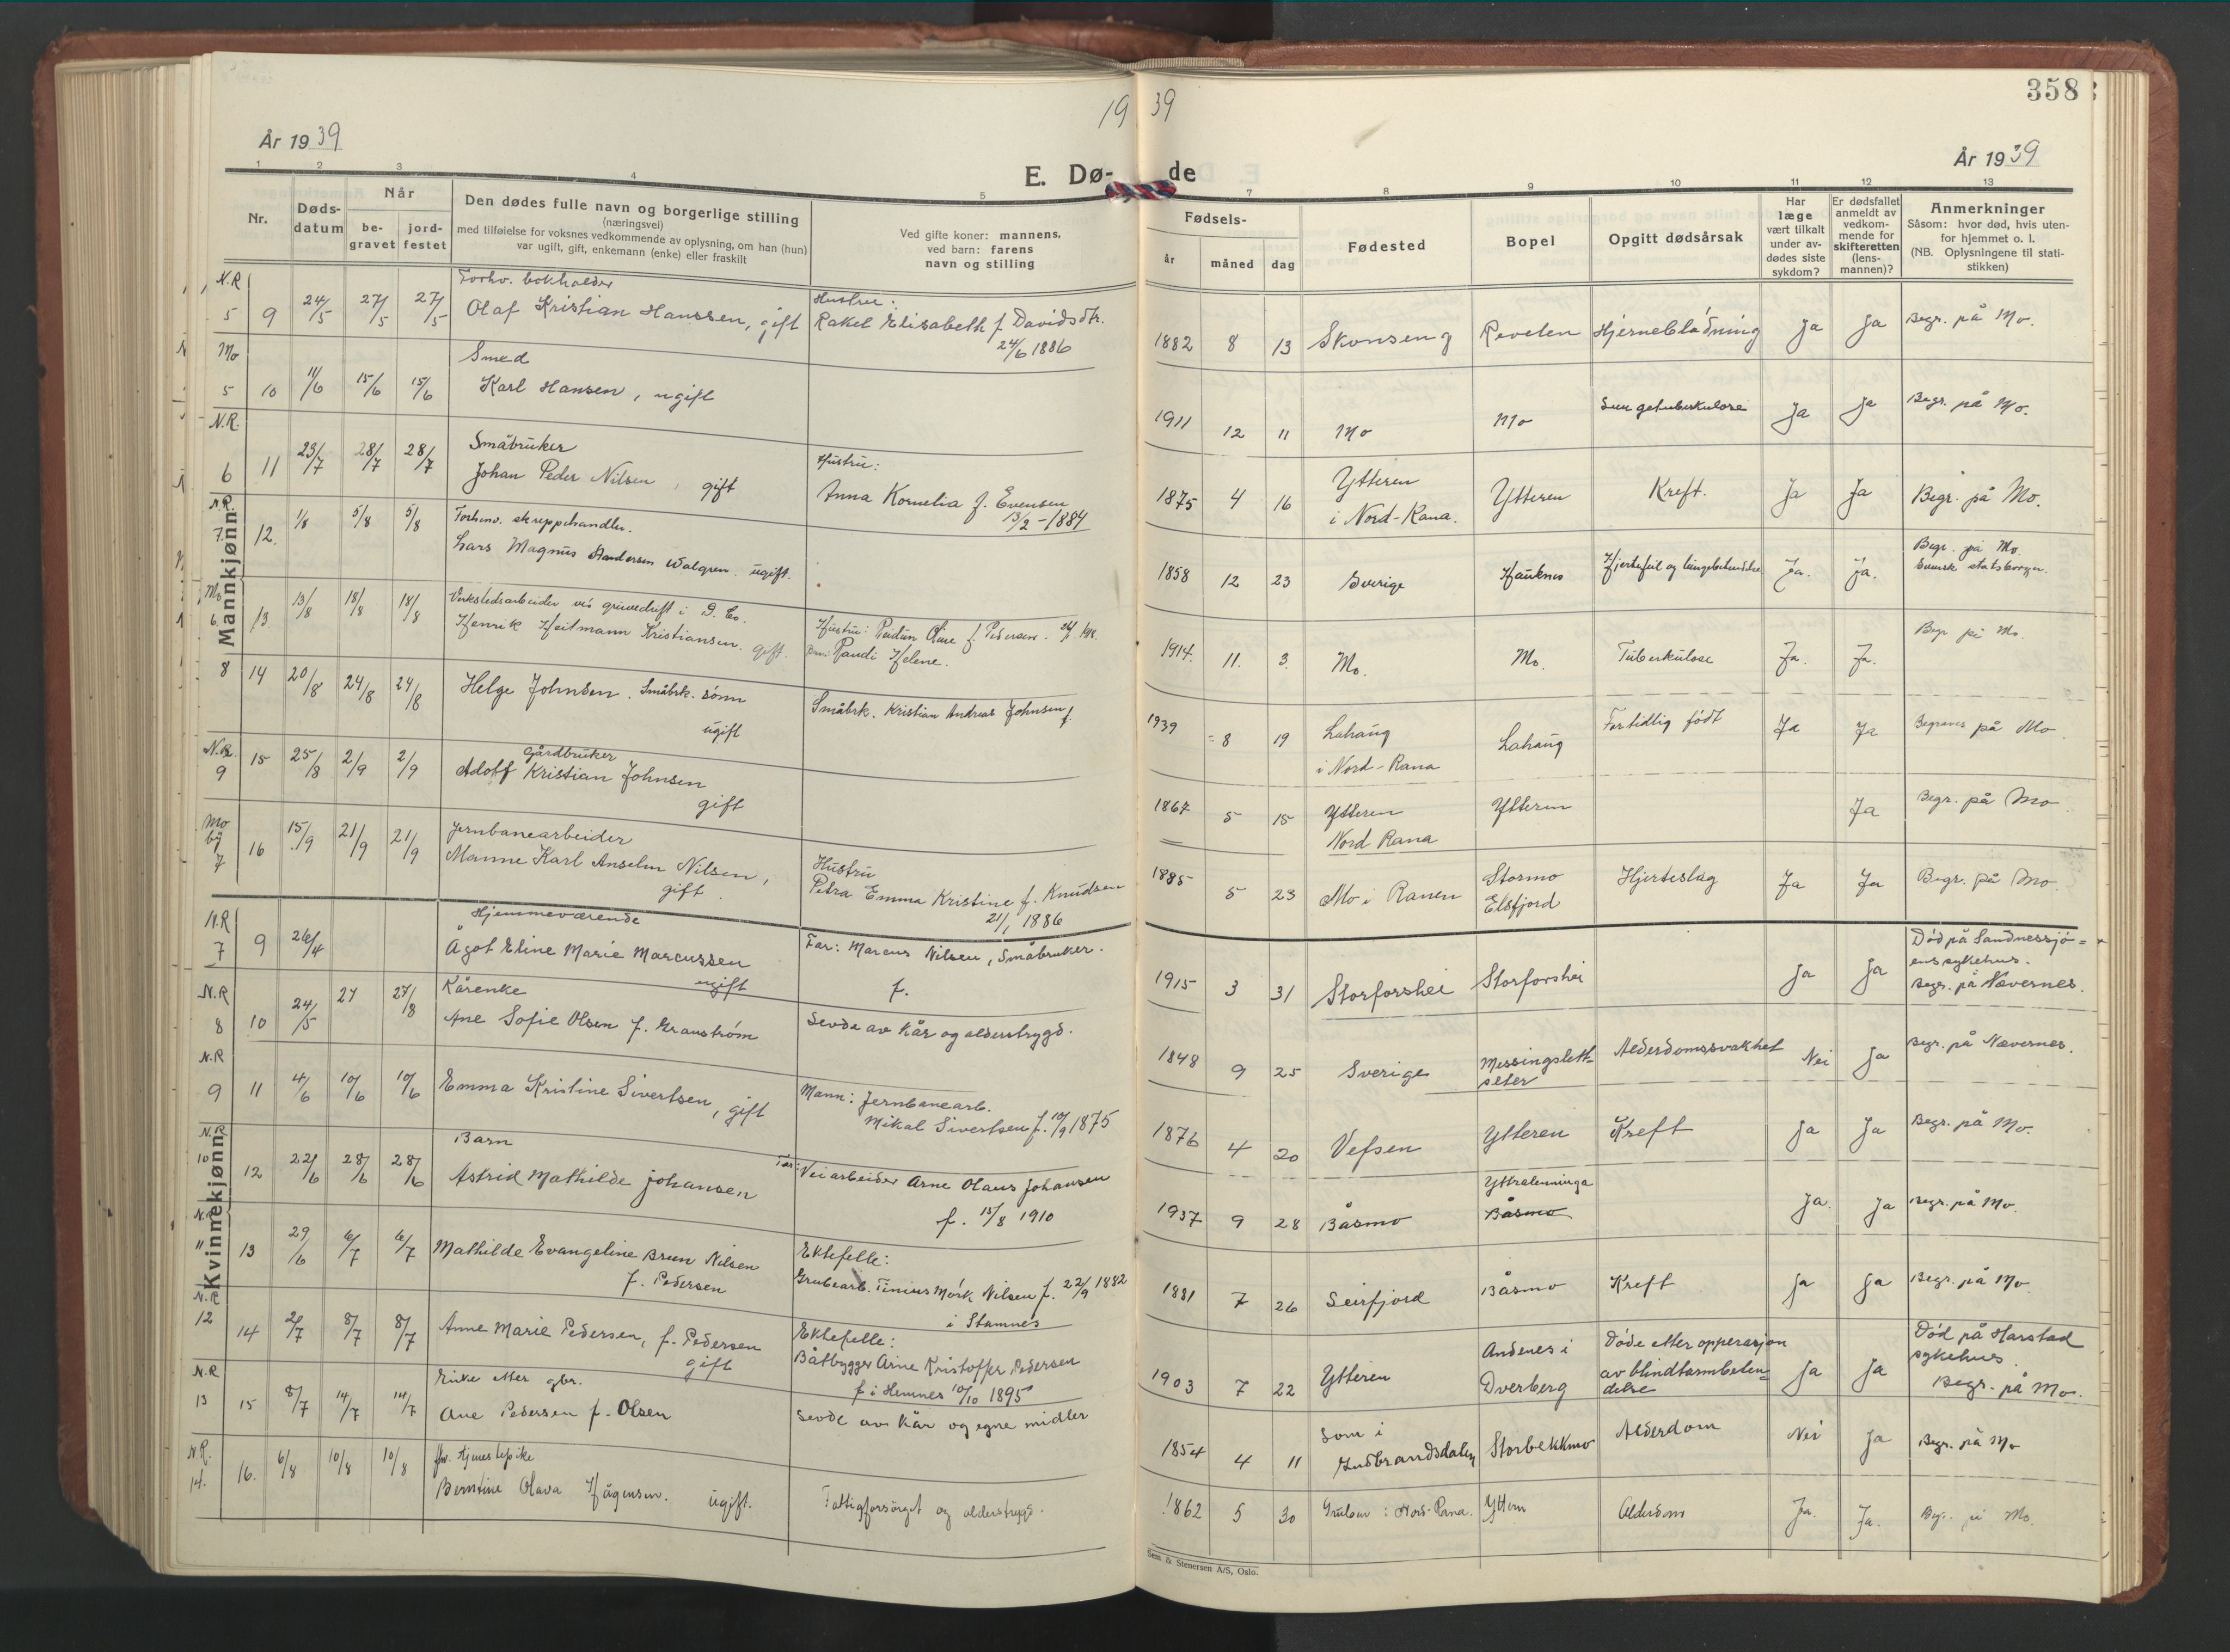 358
19 39
År 1939
År 1939
E. Dø- de
1 2 3 4 5 7 8 9 10 11 12 13
Nr.
Døds-
datum
Når
be-
gravet
jord-
festet
Den dødes fulle navn og borgerlige stilling
(næringsvei)
med tilføielse for voksnes vedkommende av oplysning, om han (hun)
var ugift, gift, enkemann (enke) eller fraskilt
Ved gifte koner: mannens,
ved barn: farens
navn og stilling
Fødsels-
år måned dag
Fødested
Bopel
Opgitt dødsårsak
Har
læge
vært tilkalt
under av-
dødes siste
sykdom?
Er dødsfallet
anmeldt av
vedkom-
mende for
skifteretten
(lens-
mannen)?
Anmerkninger
Såsom: hvor død, hvis uten-
for hjemmet o. l.
(NB. Oplysningene til stati-
stikken)
Mannkjønn
N.R
Forhv. bokholder
Hustru:
5 9 24/5 27/5 27/5 Olaf Kristian Hanssen, gift Rakel Elisabeth f. Davidsdtr.
24/6 1886
1882 8 13 Skonseng Revelen Hjerneblødning Ja Ja Begr. på Mo.
Mo
Smed
5 10 11/6 15/6 15/6 Karl Hansen, ugift
1911 12 11 Mo Mo Lungetuberkulose Ja Ja Begr. på Mo.
N.R.
Småbruker
Hustru:
6 11 23/7 28/7 28/7 Johan Peder Nilsen, gift Anna Kornelia f. Evensen
13/2-1884
1875 4 16 Ytteren Ytteren Kreft. Ja Ja Begr. på Mo.
i Nord-Rana.
N.R.
Forhenv. skreppehandler.
7. 12. 1/8 5/8 5/8 Lars Magnus Andersen Walgren. ugift.
1858 12 23 Sverige Hauknes Hjertefeil og lungebetendelse Ja. Ja. Begr. på Mo.
Svensk statsborger.
Mo
Verkstedsarbeider ves gruvedrift i D. Co.
6. 13. 13/8 18/8 18/8 Henrik Heitmann Kristiansen. gift.
Hustru: f. Pedersen.
Randi Helene.
1914. 11. 3. Mo. Mo. Tuberkulose Ja. Ja. Begr på Mo.
8 14 20/8 24/8 24/8 Helge Johnsen. Småbrk. sønn
ugift
Småbrk. Kristian Andreas Johnsen f.
1939 8 19 Lahaug Lahaug For tidlig født Ja Ja Begraves på Mo.
i Nord-Rana
N.R.
Gårdbruker
9 15 25/8 2/9 2/9 Adolf Kristian Johnsen
gift
1867 5 15 Ytteren Ytteren Ja Begr. på Mo
Nord Rana
Mo
by
Jernbanearbeider
7 16 15/9 21/9 21/9 Manne Karl Anselm Nilsen,
gift.
Hustru
Petra Emma Kristine f. Knudsen
21/1 1886
1885 5 23 Mo i Ranen Stormo Hjerteslag Ja Ja Begr. på Mo.
Elsfjord
Kvinnekjønn
N.R
Hjemmeværende
7 9 26/4 Ågot Eline Marie Marcussen
ugift
Far: Marcus Nilsen, Småbruker.
f.
1915 3 31 Storforshei Storforshei Ja Ja Død på Sandnessjø=
ens sykehus.
Begr. på Nævernes.
N.R
Kårenke
8 10 24/5 27 27/18 Ane Sofie Olsen f. Granstrøm Levde av kår og alderstrygd.
1848 9 25 Sverige Messingslett- Alderdomssvakhet Nei Ja Begr. på Nævernes.
seter
N.R
9 11 4/6 10/6 10/6 Emma Kristine Sivertsen, gift
Mann: Jernbanearb.
Mikal Sivertsen f. 10/9 1875
1876 4 20 Vefsen Ytteren Kreft Ja Ja Begr. på Mo.
N.R
Barn
10 12 22/6 28/6 28/6 Astrid Mathilde Johansen
Far: Veiarbeider Arne Olaus Johansen
f. 15/8 1910
1937 9 28 Båsmo Båsmo Ja. Ja Begr. på Mo.
N.R
11 13 29/6 6/7 6/7 Mathilde Evangeline Breen Nilsen
f. Pedersen
Ektefelle:
Grubearb. Tinius Mørk Nilsen f. 22/9 1882
i Stamnes
1881 7 26 Leirfjord Båsmo Kreft Ja Ja Begr. på Mo
N.R
12 14 2/7 8/7 8/7 Anne Marie Pedersen, f. Pedersen
gift
Ektefelle:
Båtbygger Arne Kristoffer Pedersen
f i Hemnes 10/10 1895
1903 7 22 Ytteren Andenes i
Dverberg
Døde etter opperasjon
av blindtarmbeten=
delse
Ja Ja Død på Harstad
sykehus.
Begr. på Mo.
N.R
Enke etter gbr.
13 15 8/7 14/7 14/7 Ane Pedersen f. Olsen Levde av kår og egne midler
1854 4 11 Lom i
Gudbrandsdalen Storbekkmo Alderdom Nei Ja Begr. på Mo
N.R.
fhv. tjenestepike
14. 16. 6/8 10/8 10/8 Berntine Olava Hågensen. ugift. Fattigforsørget og alderstrygd.
1862 5 30 Gruben i Nord-Rana. Yttern Alderdom Ja. Ja. Begr. på Mo.
Sem & Stenersen A/S, Oslo.